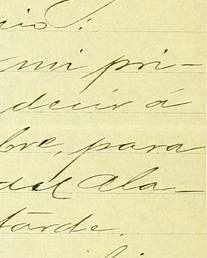 mi pri-
decir á
bre, para
del Ala-
tarde.